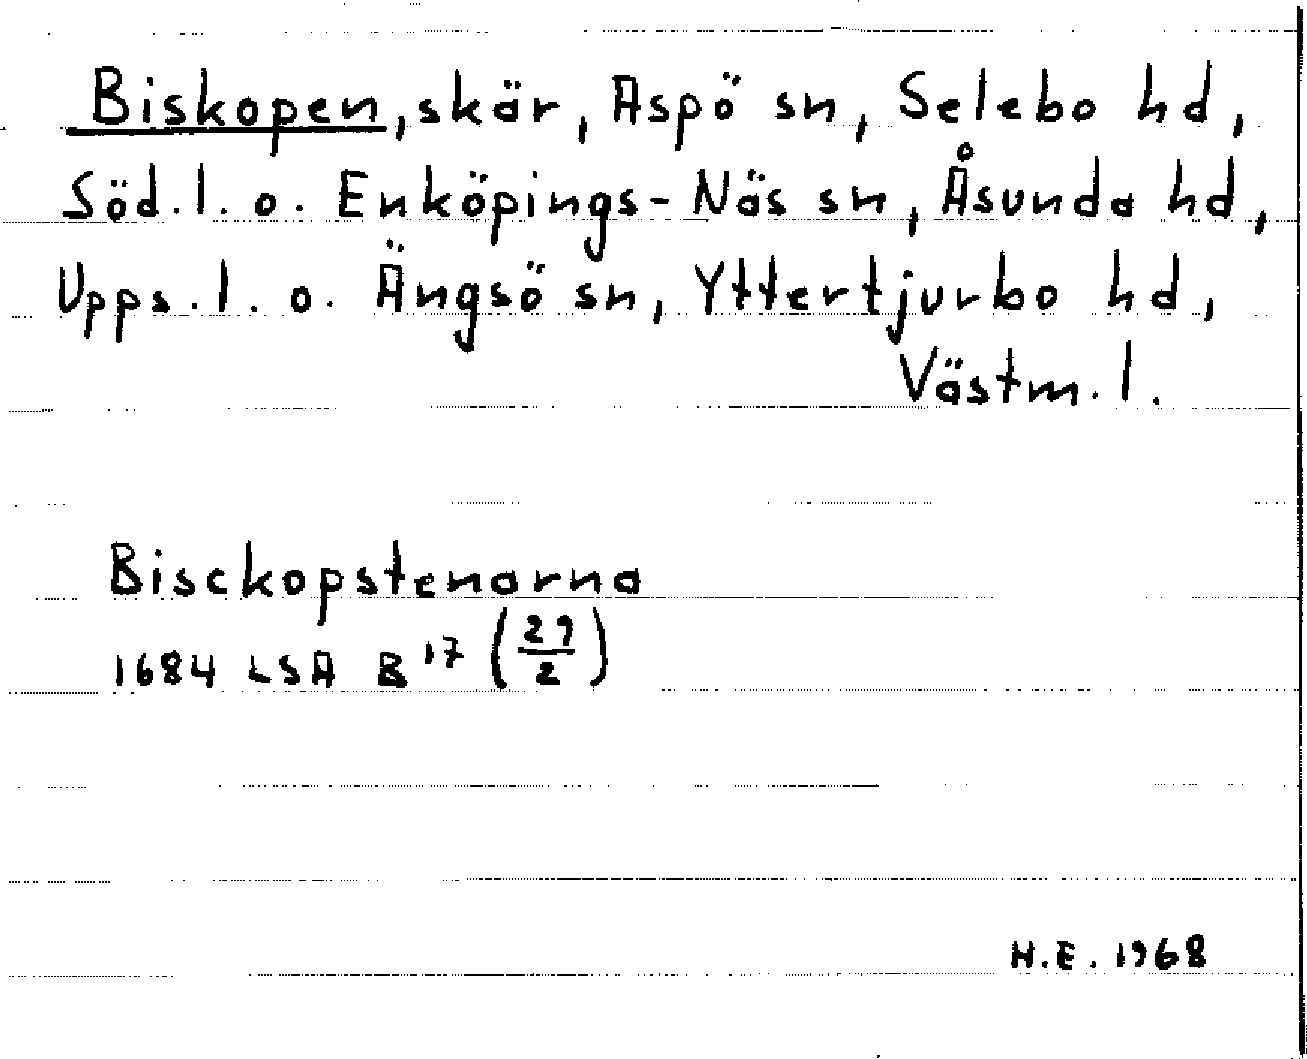 Biskopen, skär, Aspö sn, Selebo hd,
Söd.l. o. Enköpings-Näs sn, Åsunda hd,
Upps.l. o. Ängsö sn, Yttertjurbo hd,
Västm.l.
Bisckopstenarna
1684 LSA B¹⁷ (29/2)
H.E. 1968